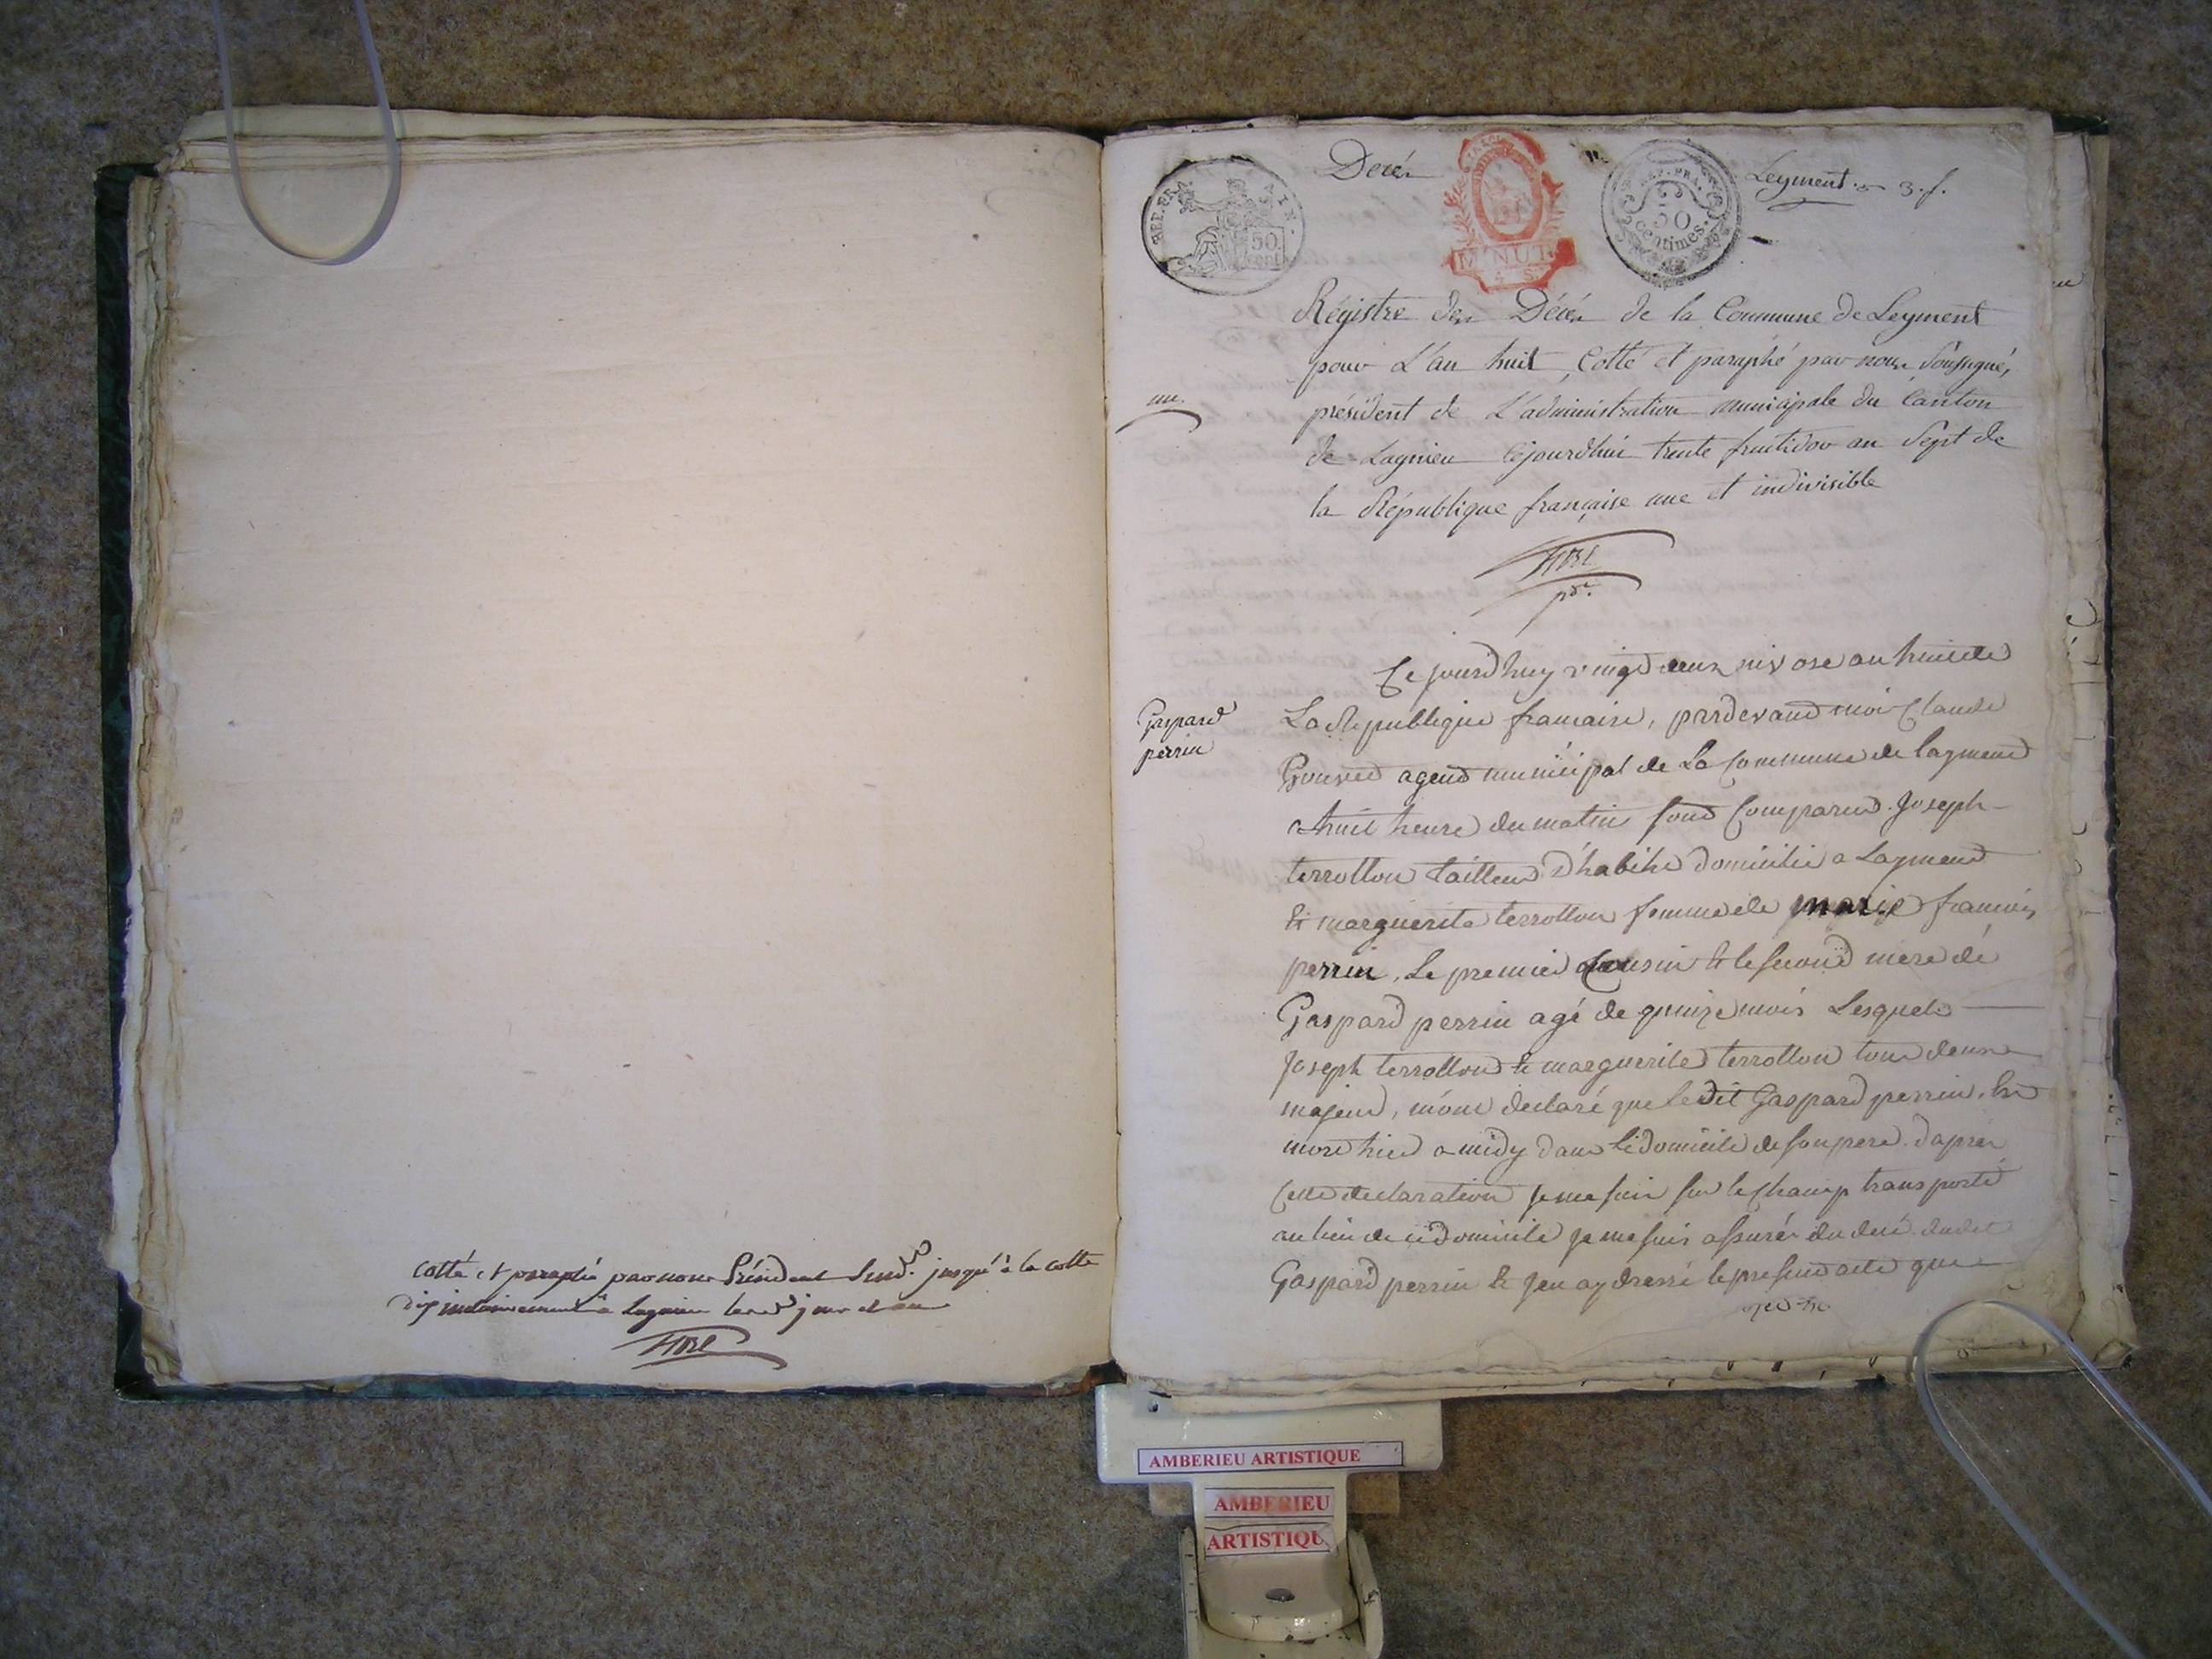 cotté et paraphé par nous Président jusqu'à la cotte
dix inclusivement à Lagnieu jour et an
Decés
Leyment 3. f.
REP. FRA.
50 cent
MINUT
REP. FRA.
50
centimes
Régistre des Décés de la Commune de Leyment
pour L'an huit, Cotté et paraphé par nous Soussigné,
président de L'administration municipale du Canton
de Lagnieu Cejourdhui trente fructidor an Sept de
la République française une et indivisible
une.
pdt.
Ce jourdhuy vingd deux nivose an huit de
La Republique francaise, pardevand moi Claude
agend municipal de La Commune de laymend
a huit heure du matin sond Comparus Joseph
terrollon tailleur d'habits domicilié a Laymend
& marguerite terrollon femme de marie francois
perrin, Le premier Cousin & le second mere de
Gaspard perrin agé de quinze mois Lesquels
Joseph terrollon & marguerite terrollon tous deux
majeurs, m'ont declaré que ledit Gaspard perrin, est
mort hier a midy dans le domicile de son pere. dapres
Cette declaration je me suis sur le Champ transporté
au lieu de ce domicile je me suis assurés du decé dudit
Gaspard perrin & jen ay dressé le presend acte que
Gaspard
perrin
AMBERIEU ARTISTIQUE
AMBERIEU
ARTISTIQU